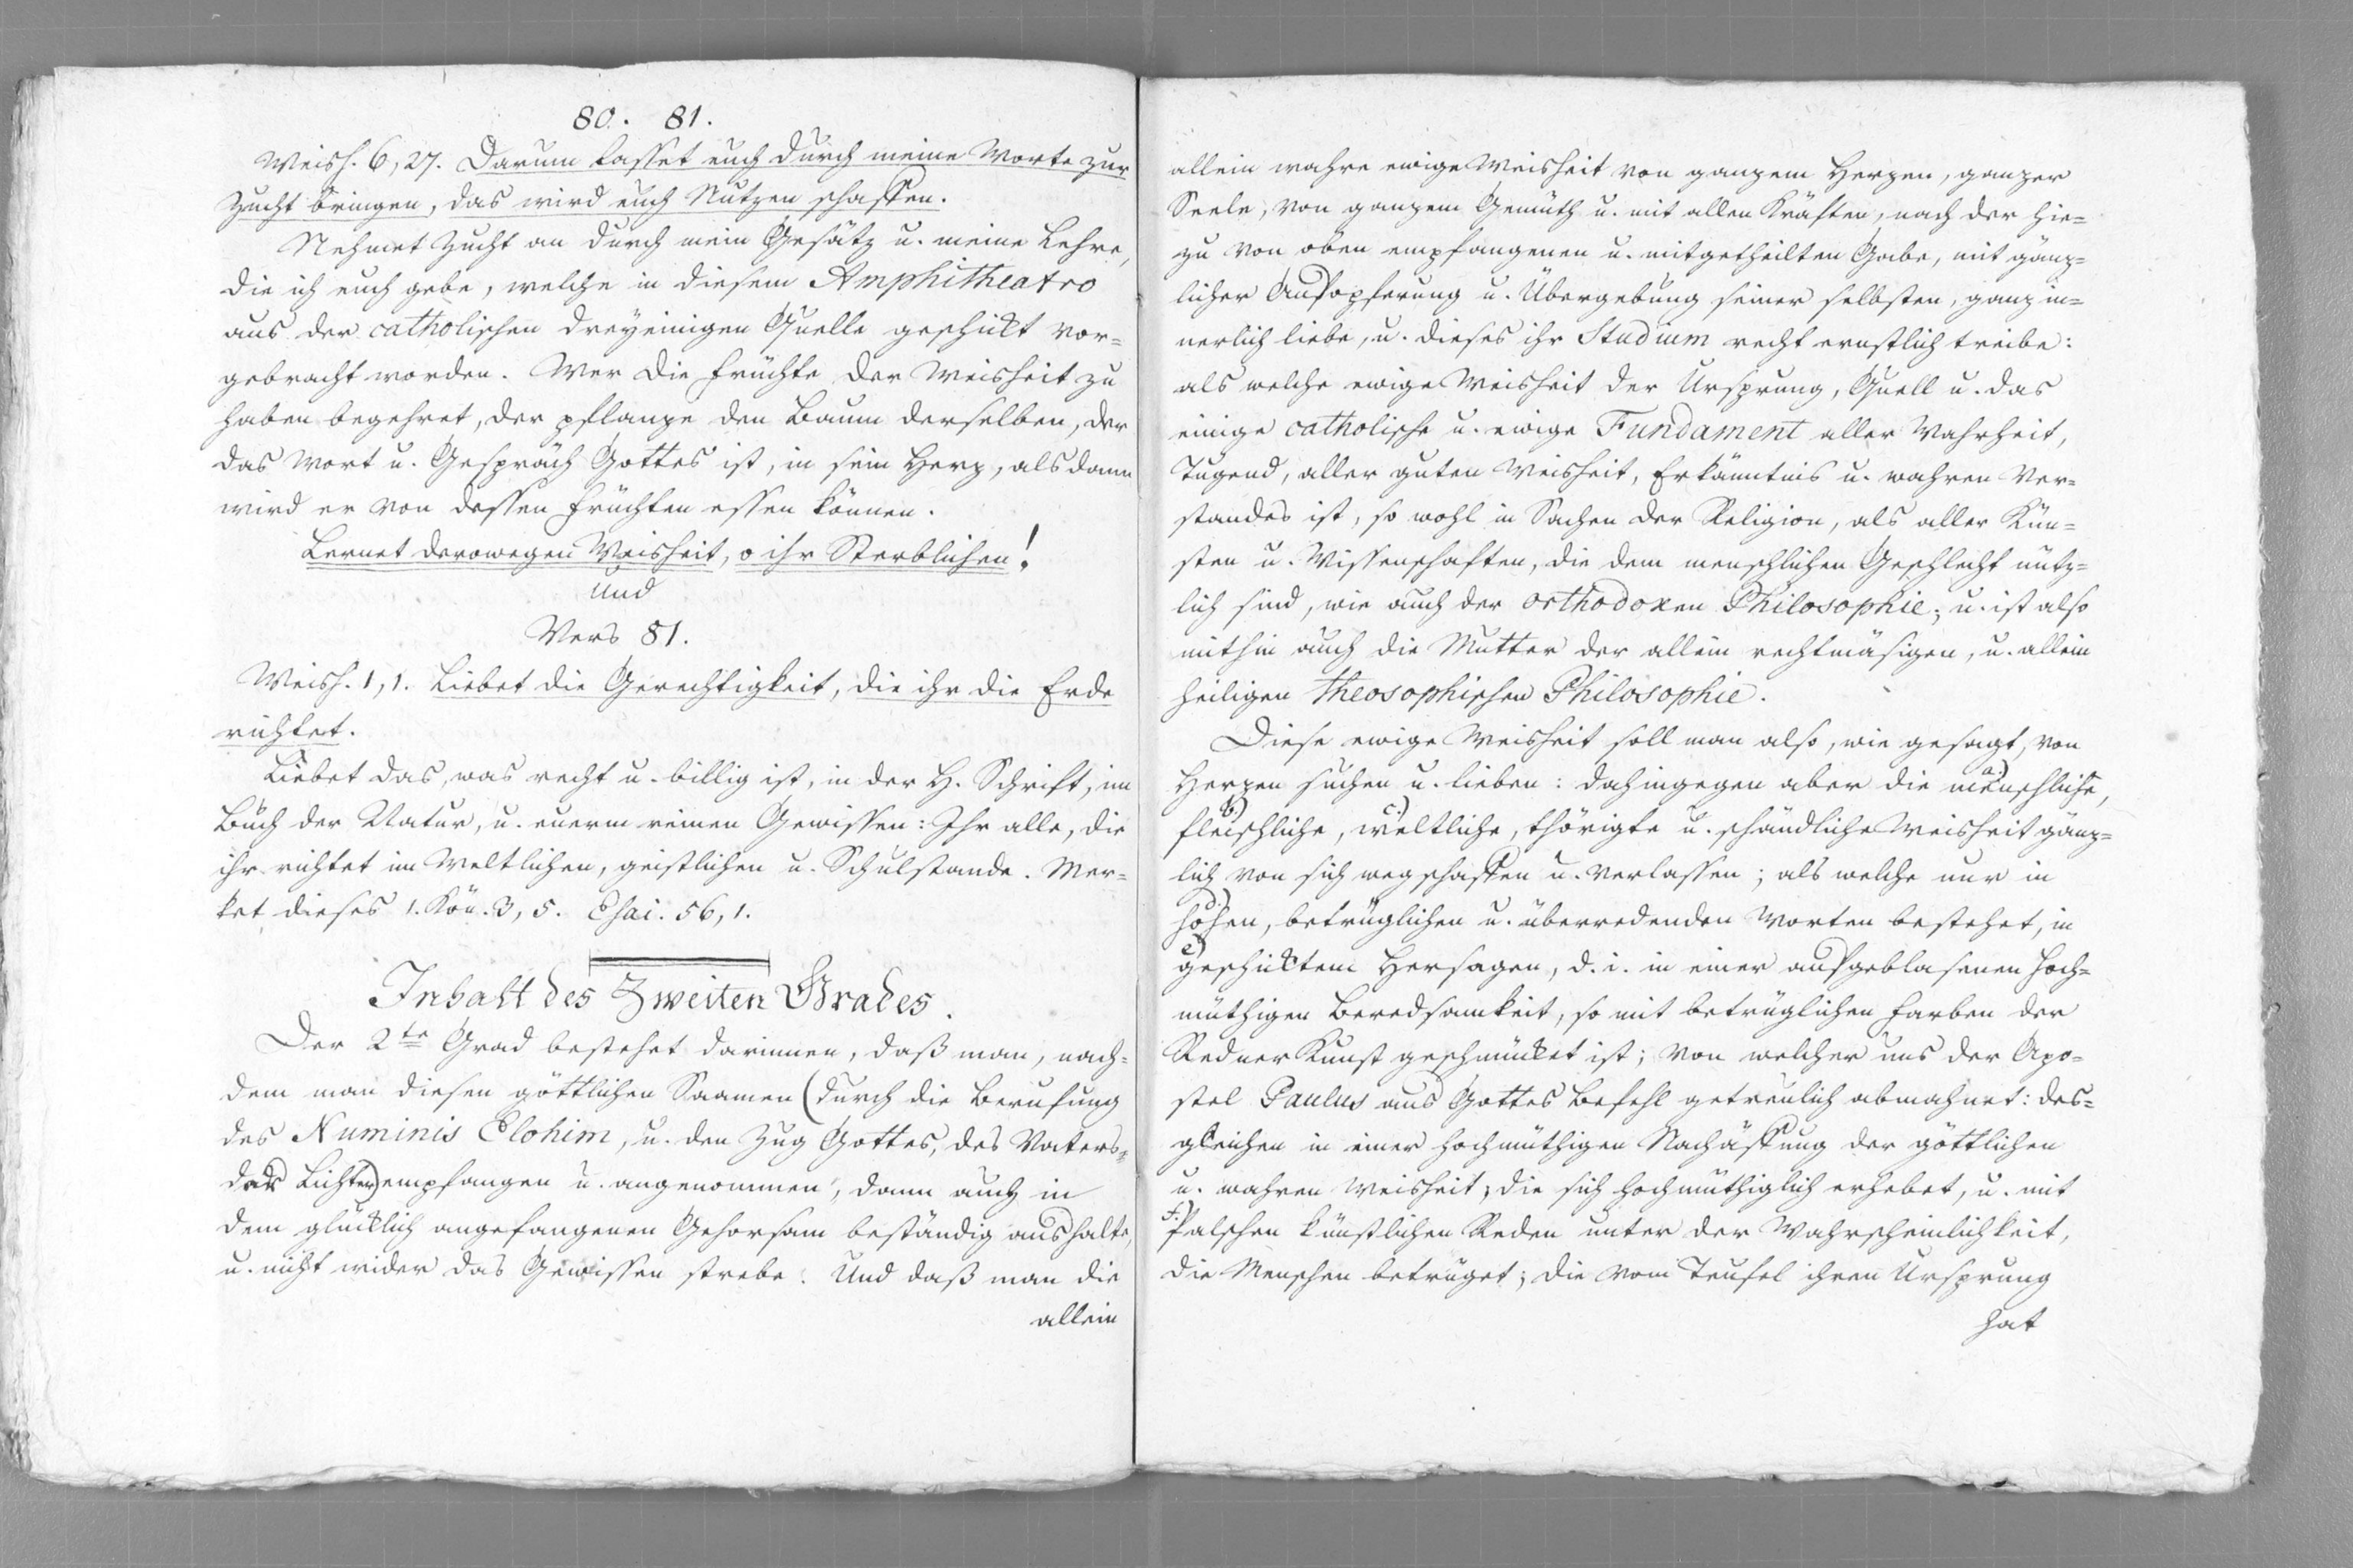 80. 81.
Weish. 6, 27. Darum lasset euch durch meine Worte zur
Zucht bringen, das wird euch Nutzen schaffen.
Nehmet Zucht an durch mein Gesätz u. meine Lehre,
die ich euch gebe, welche in diesem Amphitheatro
aus der catholischen dreyeinigen Quelle geschickt vor=
gebracht worden. Wer die Früchte der Weisheit zu
haben begehret, der pflanze den Baum derselben, der
das Wort u. Gespräch Gottes ist, in sein Herz, alsdann
wird er von dessen Früchten essen können.
Lernet derowegen Weisheit, o ihr Sterblichen!
und
Vers 81.
Weish. 1, 1. Liebet die Gerechtigkeit, die ihr die Erde
richtet.
Liebet das, was recht u. billig ist, in der H. Schrift, im
Buch der Natur, u. euerm reinen Gewissen: Ihr alle, die
ihr richtet im Weltlichen, geistlichen u. Schulstande. Mer=
ket dieses 1. Kön. 3, 5. Esai. 56, 1.
Inhalt des Zweiten Grades.
Der 2te Grad bestehet darinnen, daß man, nach=
dem man diesen göttlichen Saamen (durch die Berufung
des Numinis Elohim, u. den Zug Gottes, des Vaters
der Lichter) empfangen u. angenommen, dann auch in
dem glücklich angefangenen Gehorsam beständig aushalte,
u. nicht wider das Gewissen strebe. Und daß man die
allein
allein wahre ewige Weisheit von ganzem Herzen, ganzer
Seele, von ganzem Gemüth u. mit allen Kräften, nach der hie=
zu von oben empfangenen u. mitgetheilten Gabe, mit gänz=
licher Aufopferung u. Übergebung seiner selbsten, ganz in=
nerlich liebe, u. dieses ihr Studium recht ernstlich treibe:
als welche ewige Weisheit der Ursprung, Quell u. das
einige catholische u. ewige Fundament aller Wahrheit,
Tugend, aller guten Weisheit, Erkänntnis u. wahren Ver=
standes ist, so wohl in Sachen der Religion, als aller Kün=
sten u. Wissenschaften, die dem menschlichen Geschlecht nütz=
lich sind, wie auch der orthodoxen Philosophie; u. ist also
mithin auch die Mutter der allein rechtmäsigen, u. allein
heiligen theosophischen Philosophie.
Diese ewige Weisheit soll man also, wie gesagt, von
Herzen suchen u. lieben: dahingegen aber die a.) menschliche,
b.) fleischliche, c.) weltliche, thörigte u. schändliche Weisheit gänz=
lich von sich wegschaffen u. verlassen; als welche nur in
d.) hohen, betrüglichen u. überredenden Worten bestehet, in
e.) geschicktem Hersagen, d. i. in einer aufgeblasenen hoch=
müthigen Beredsamkeit, so mit betrüglichen Farben der
Redner Kunst geschmücket ist; von welcher uns der Apo=
stel Paulus aus Gottes Befehl getreulich abmahnet: des=
gleichen in einer hochmüthigen Nachäffung der göttlichen
u. wahren Weisheit, die sich hochmüthiglich erhebet, u. mit
f.) falschen künstlichen Reden unter der Wahrscheinlichkeit,
die Menschen betrüget; die vom Teufel ihren Ursprung
hat